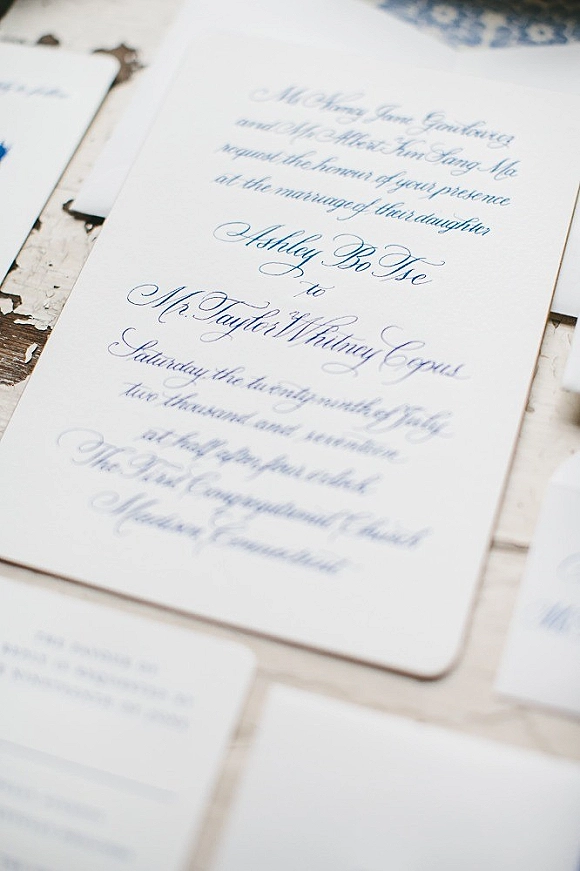 Ms Nancy Jane
and Mr Albert Kin Sang Ma
request the honour of your presence
at the marriage of their daughter
Ashley Bo Tse
to
Mr. Taylor Whitney Copus
Saturday the twenty ninth of July
two thousand and seventeen
at half after four o'clock
The First Congregational Church
Madison, Connecticut